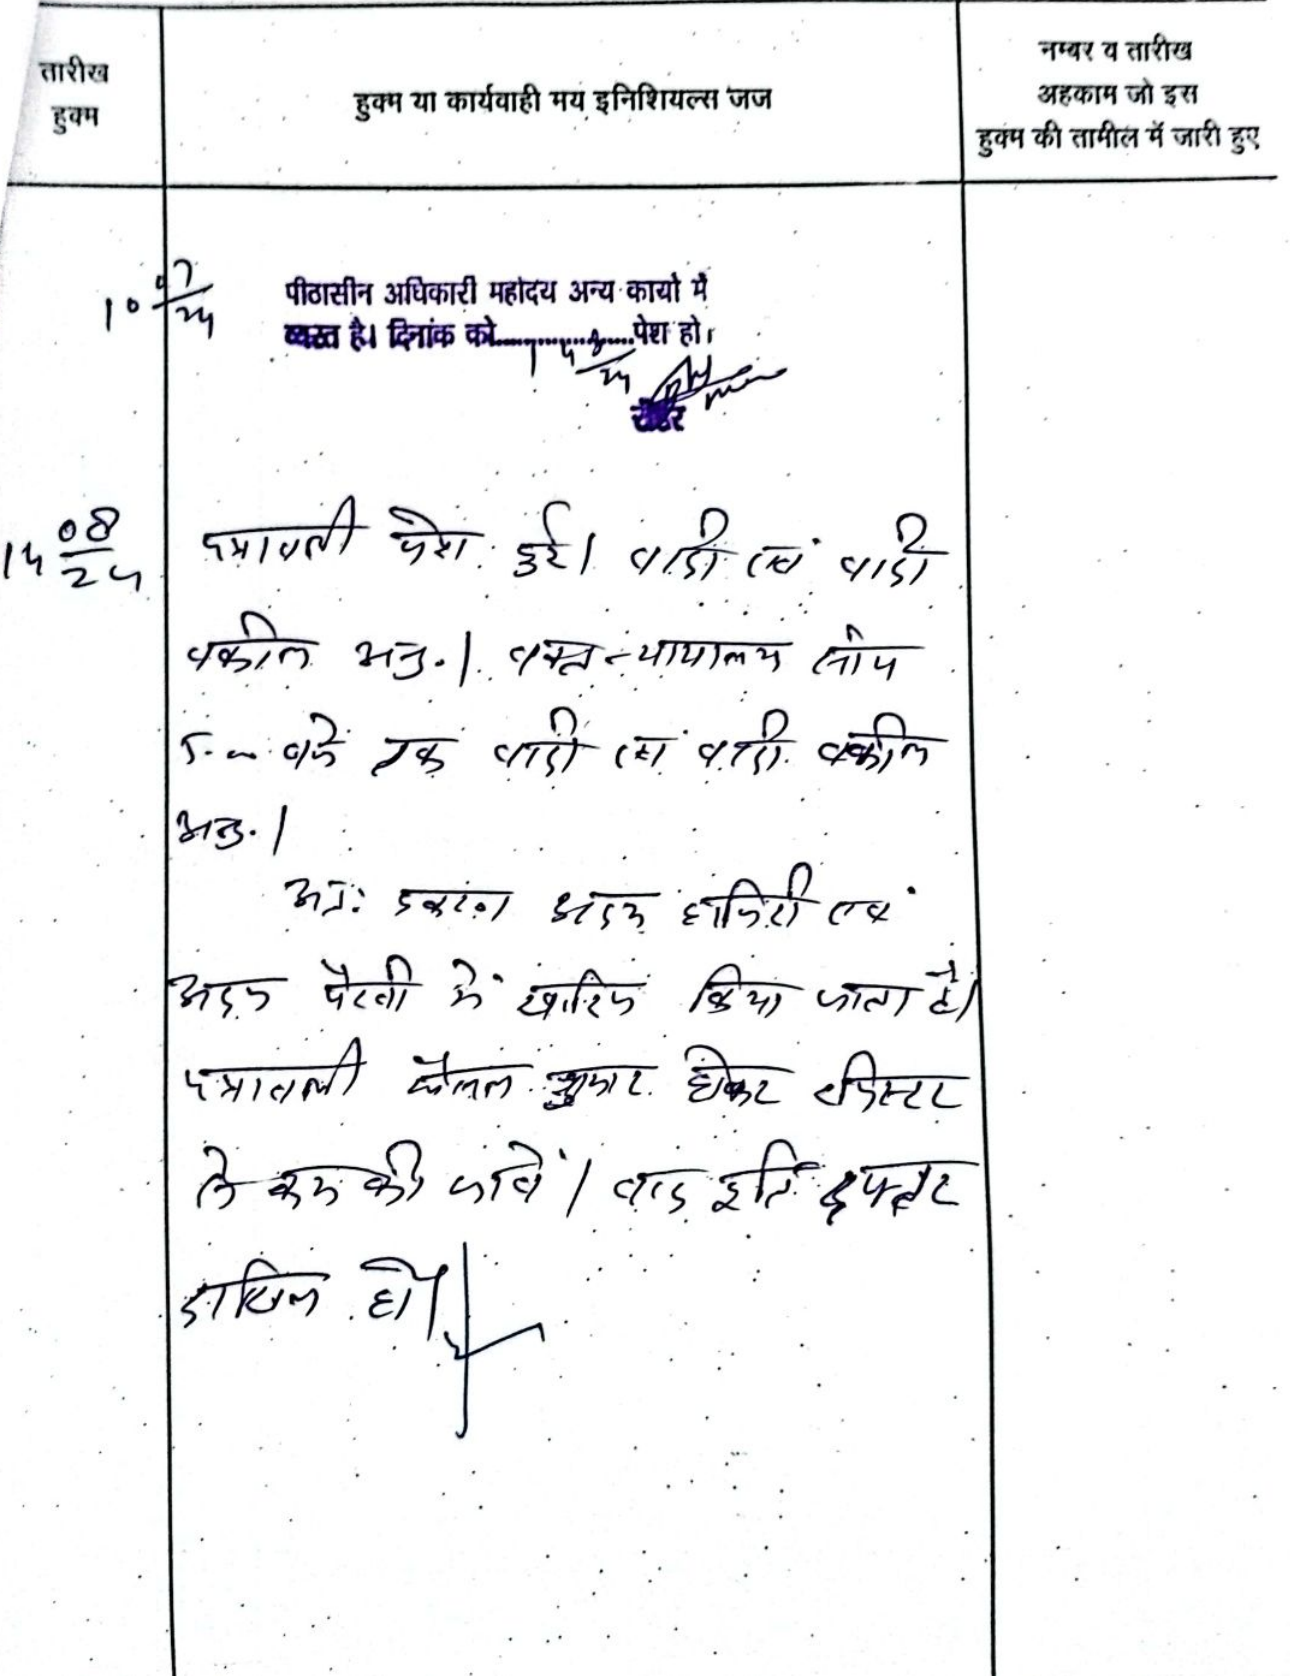 तारीख
हुक्म
हुक्म या कार्यवाही मय इनिशियल्स जज
नम्बर व तारीख
अहकाम जो इस
हुक्म की तामील में जारी हुए
10 07/24
पीठासीन अधिकारी महोदय अन्य कार्यो में
व्यस्त है। दिनांक को..................पेश हो।
14 8/24
रीडर
14 08/24
पत्रावली पेश हुई। वादी एवं वादी
वकील अनु.। वक्त न्यायालय
5.00 बजे तक वादी एवं वादी वकील
अनु.।
अत: प्रकरण अदम हाजिरी एवं
अदम पैरवी में खारिज किया जाता है।
पत्रावली फैसल शुमार होकर रजिस्टर
से कम की जावें। बाद दफ्तर
दाखिल हो।